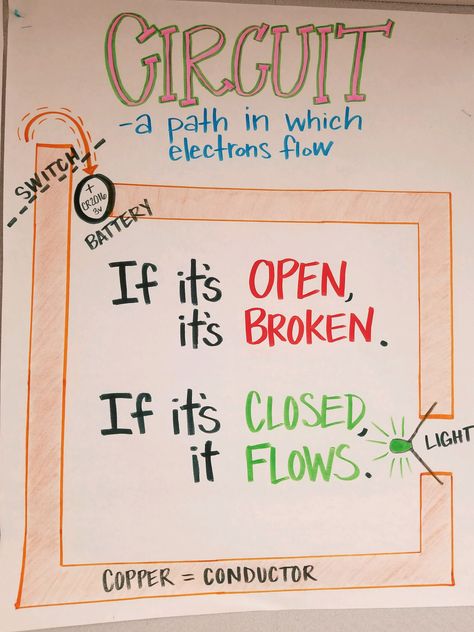 CIRCUIT
-a path in which
electrons flow
SWITCH
+
CR2016
3v
BATTERY
If it's OPEN,
it's BROKEN.
If it's CLOSED,
it FLOWS.
LIGHT
COPPER = CONDUCTOR